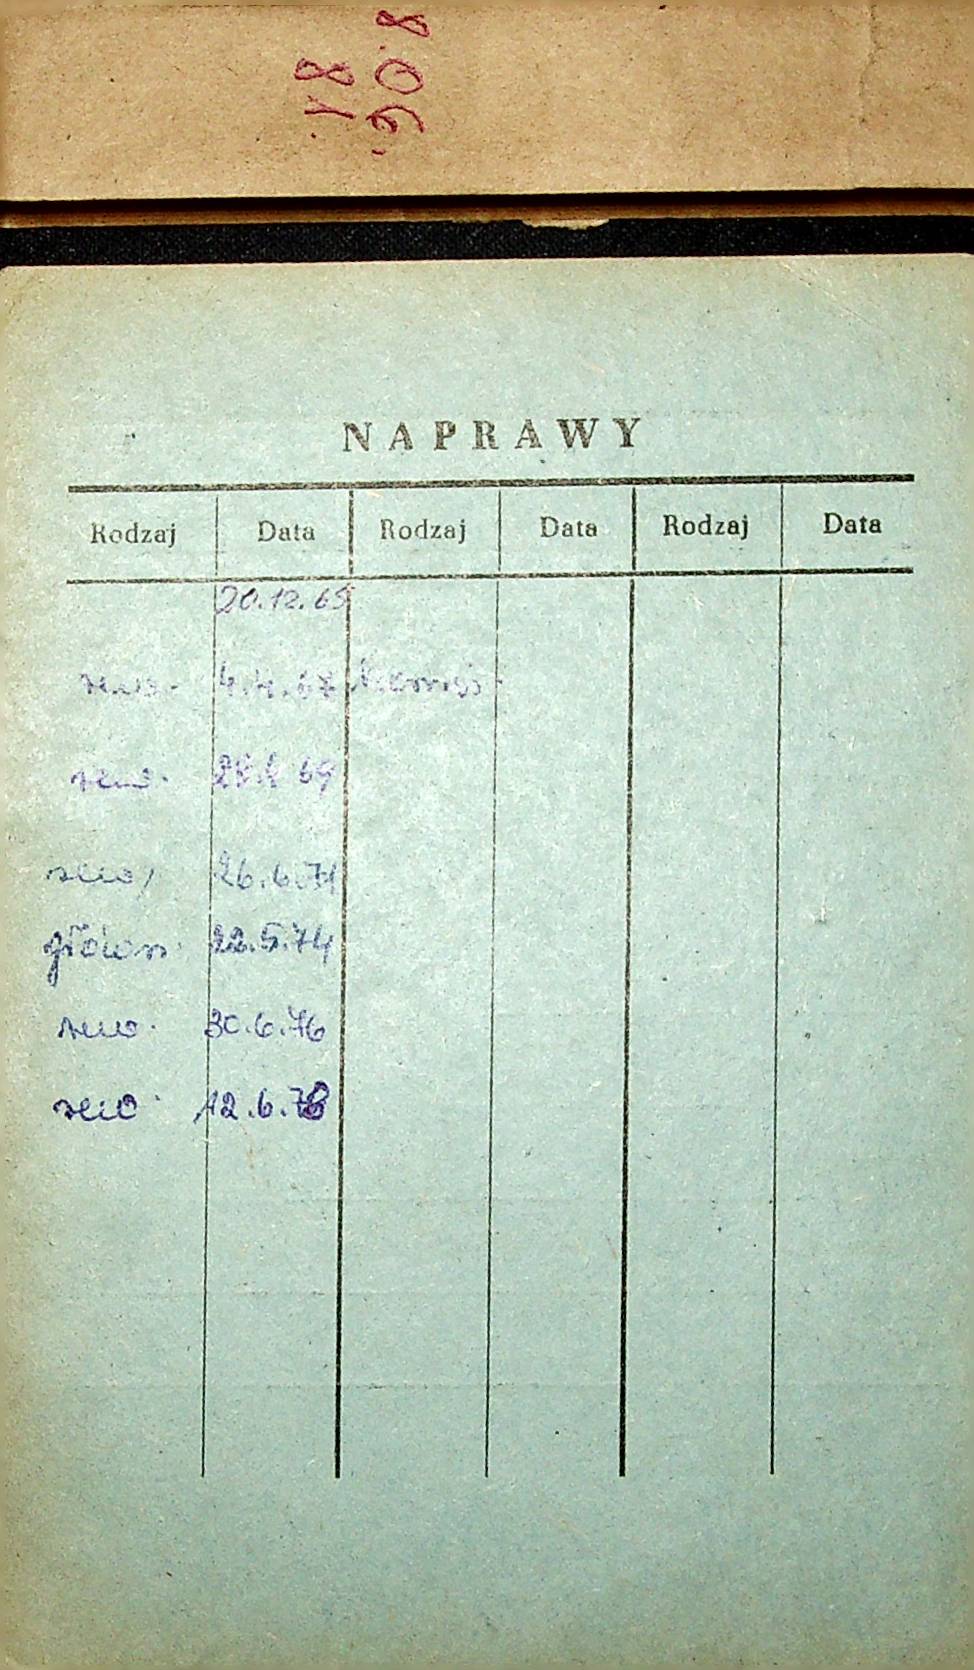 NAPRAWY
Rodzaj Data Rodzaj Data Rodzaj Data
20.12.65
rewo. 4.4.67
rewo. 69
rewo, 26.6.71
główn. 22.5.74
rewo. 30.6.76
rewo. 12.6.78